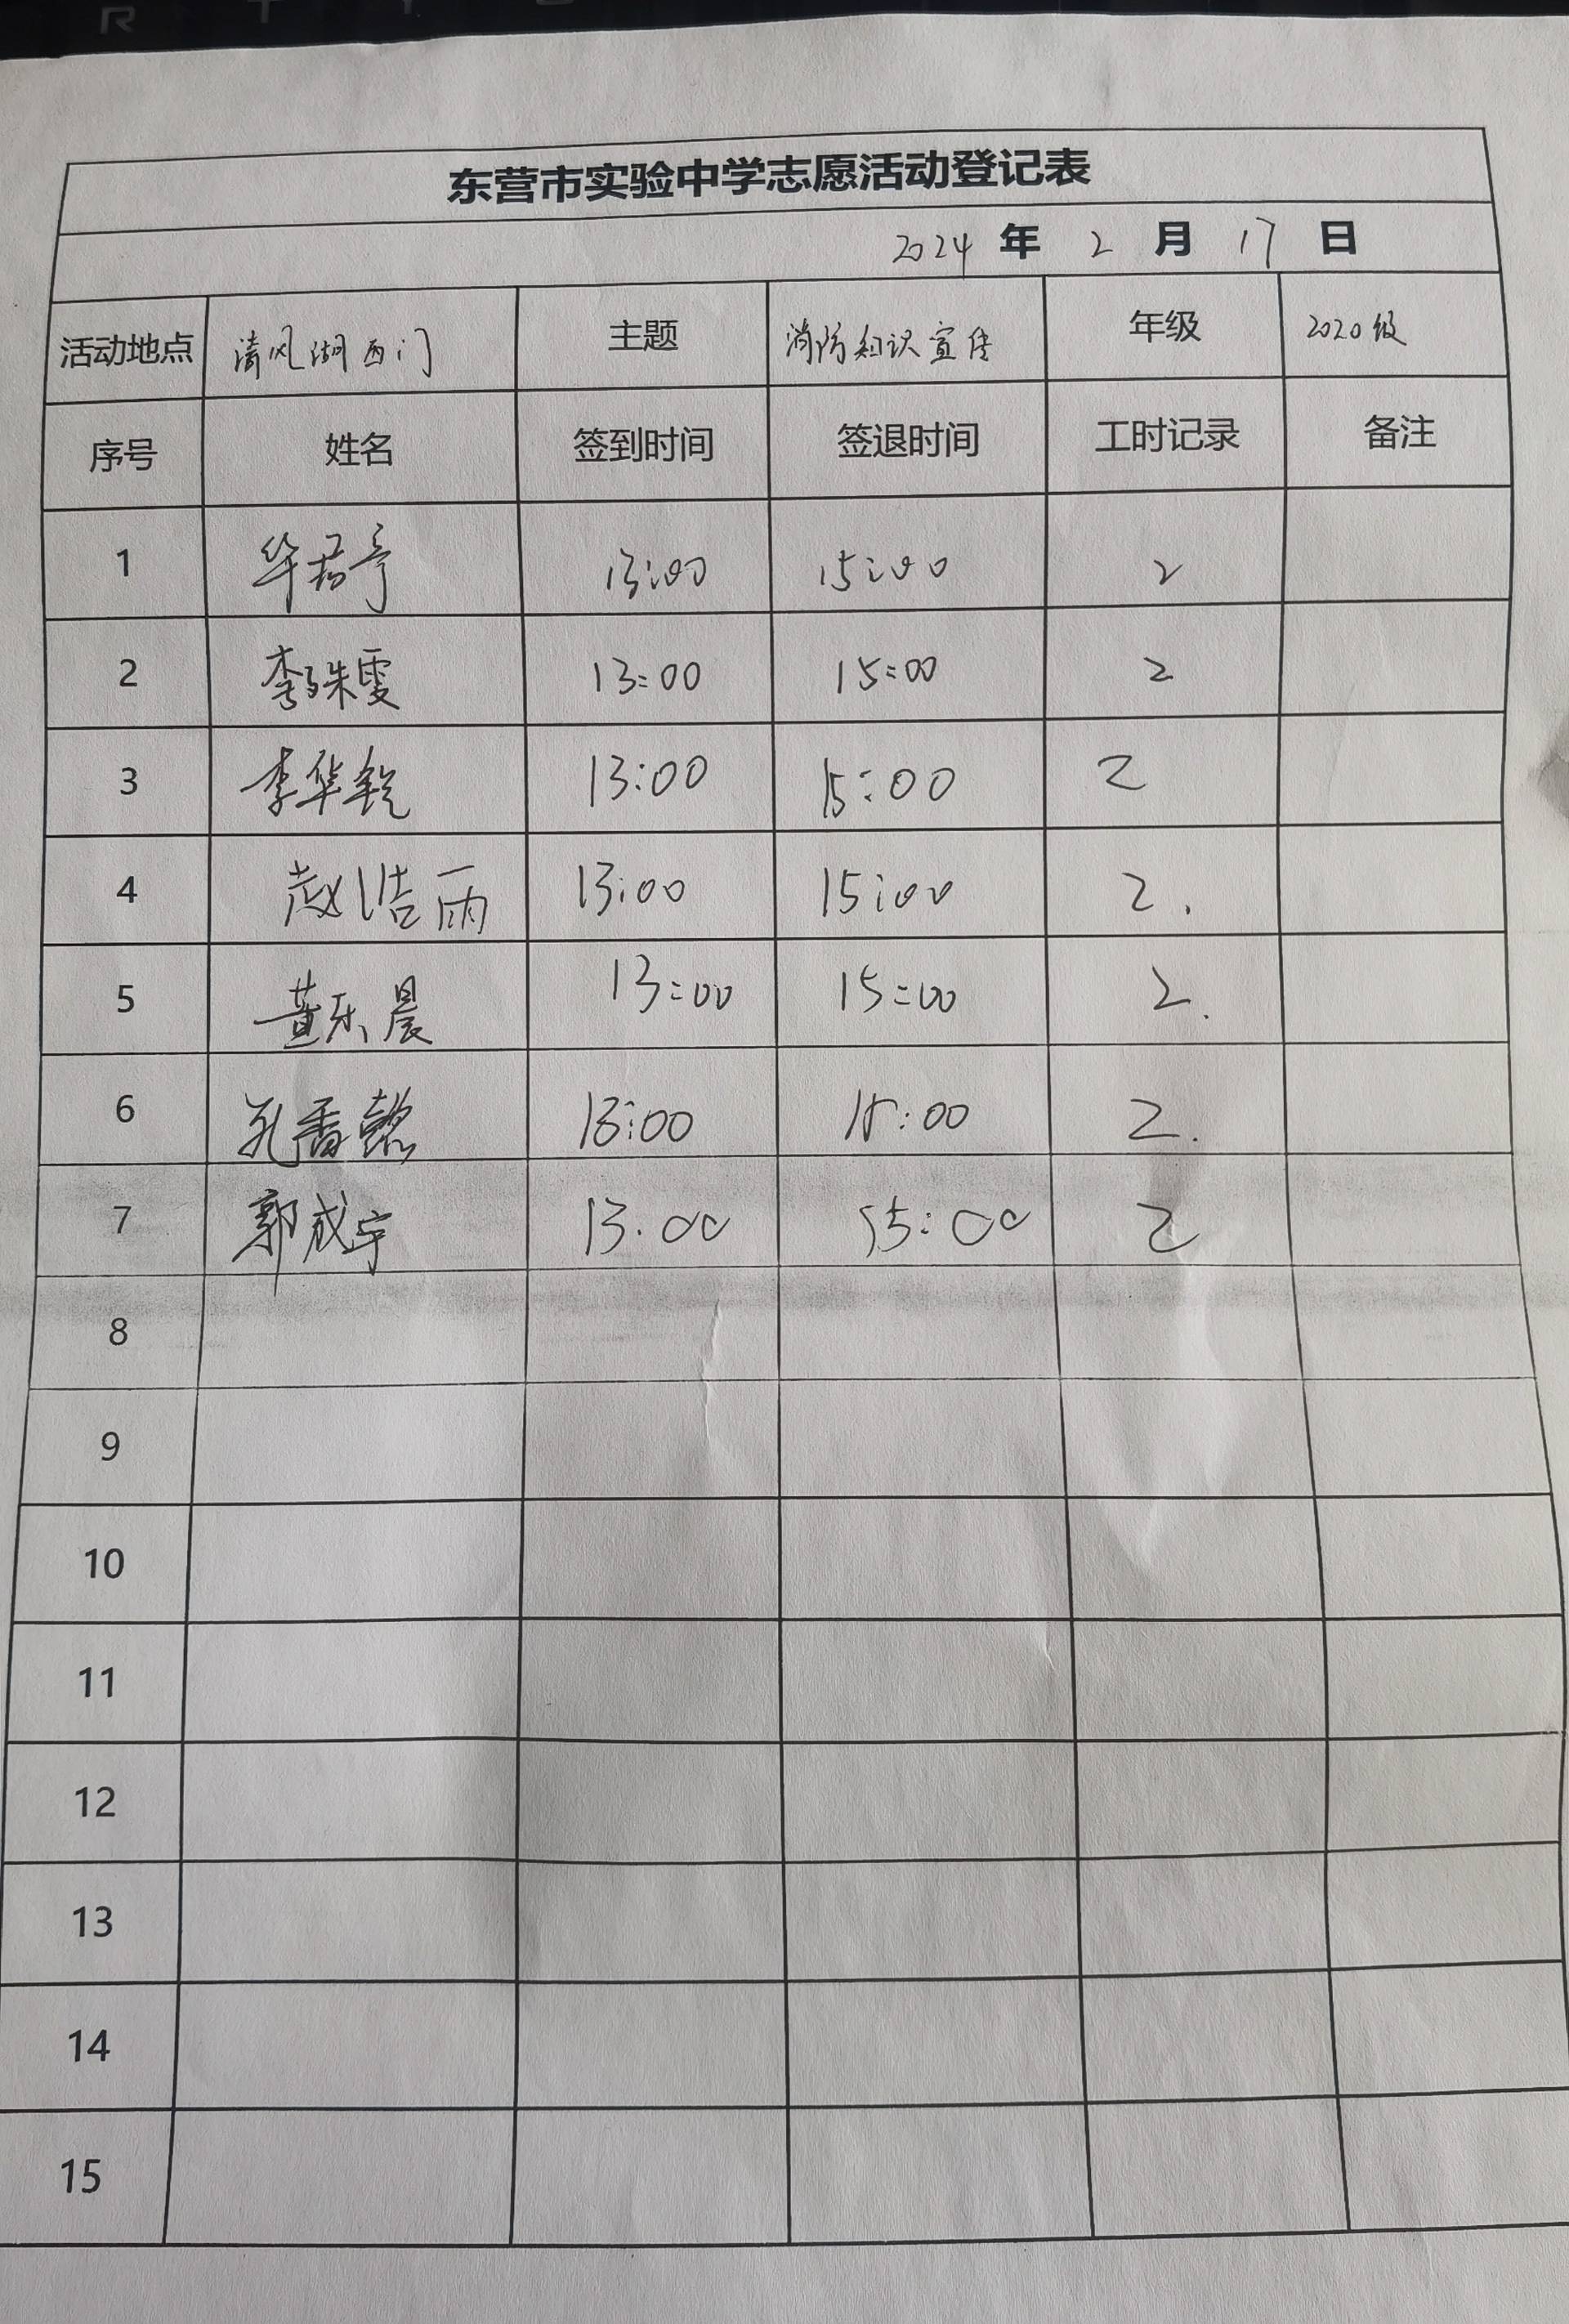 东营市实验中学志愿活动登记表
2024 年 2 月 17 日
活动地点 清风湖西门 主题 消防知识宣传 年级 2020级
序号 姓名 签到时间 签退时间 工时记录 备注
1 华君亭 13:00 15:00 2
2 李姝雯 13:00 15:00 2
3 李华锐 13:00 15:00 2
4 赵浩雨 13:00 15:00 2.
5 董乐晨 13:00 15:00 2.
6 孔香懿 13:00 15:00 2.
7 郭成宇 13:00 15:00 2
8
9
10
11
12
13
14
15